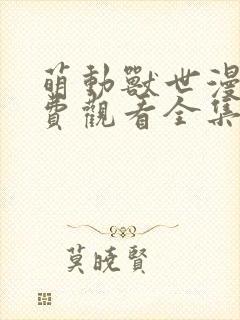 萌動獸世漫
費觀看全集
莫曉賢